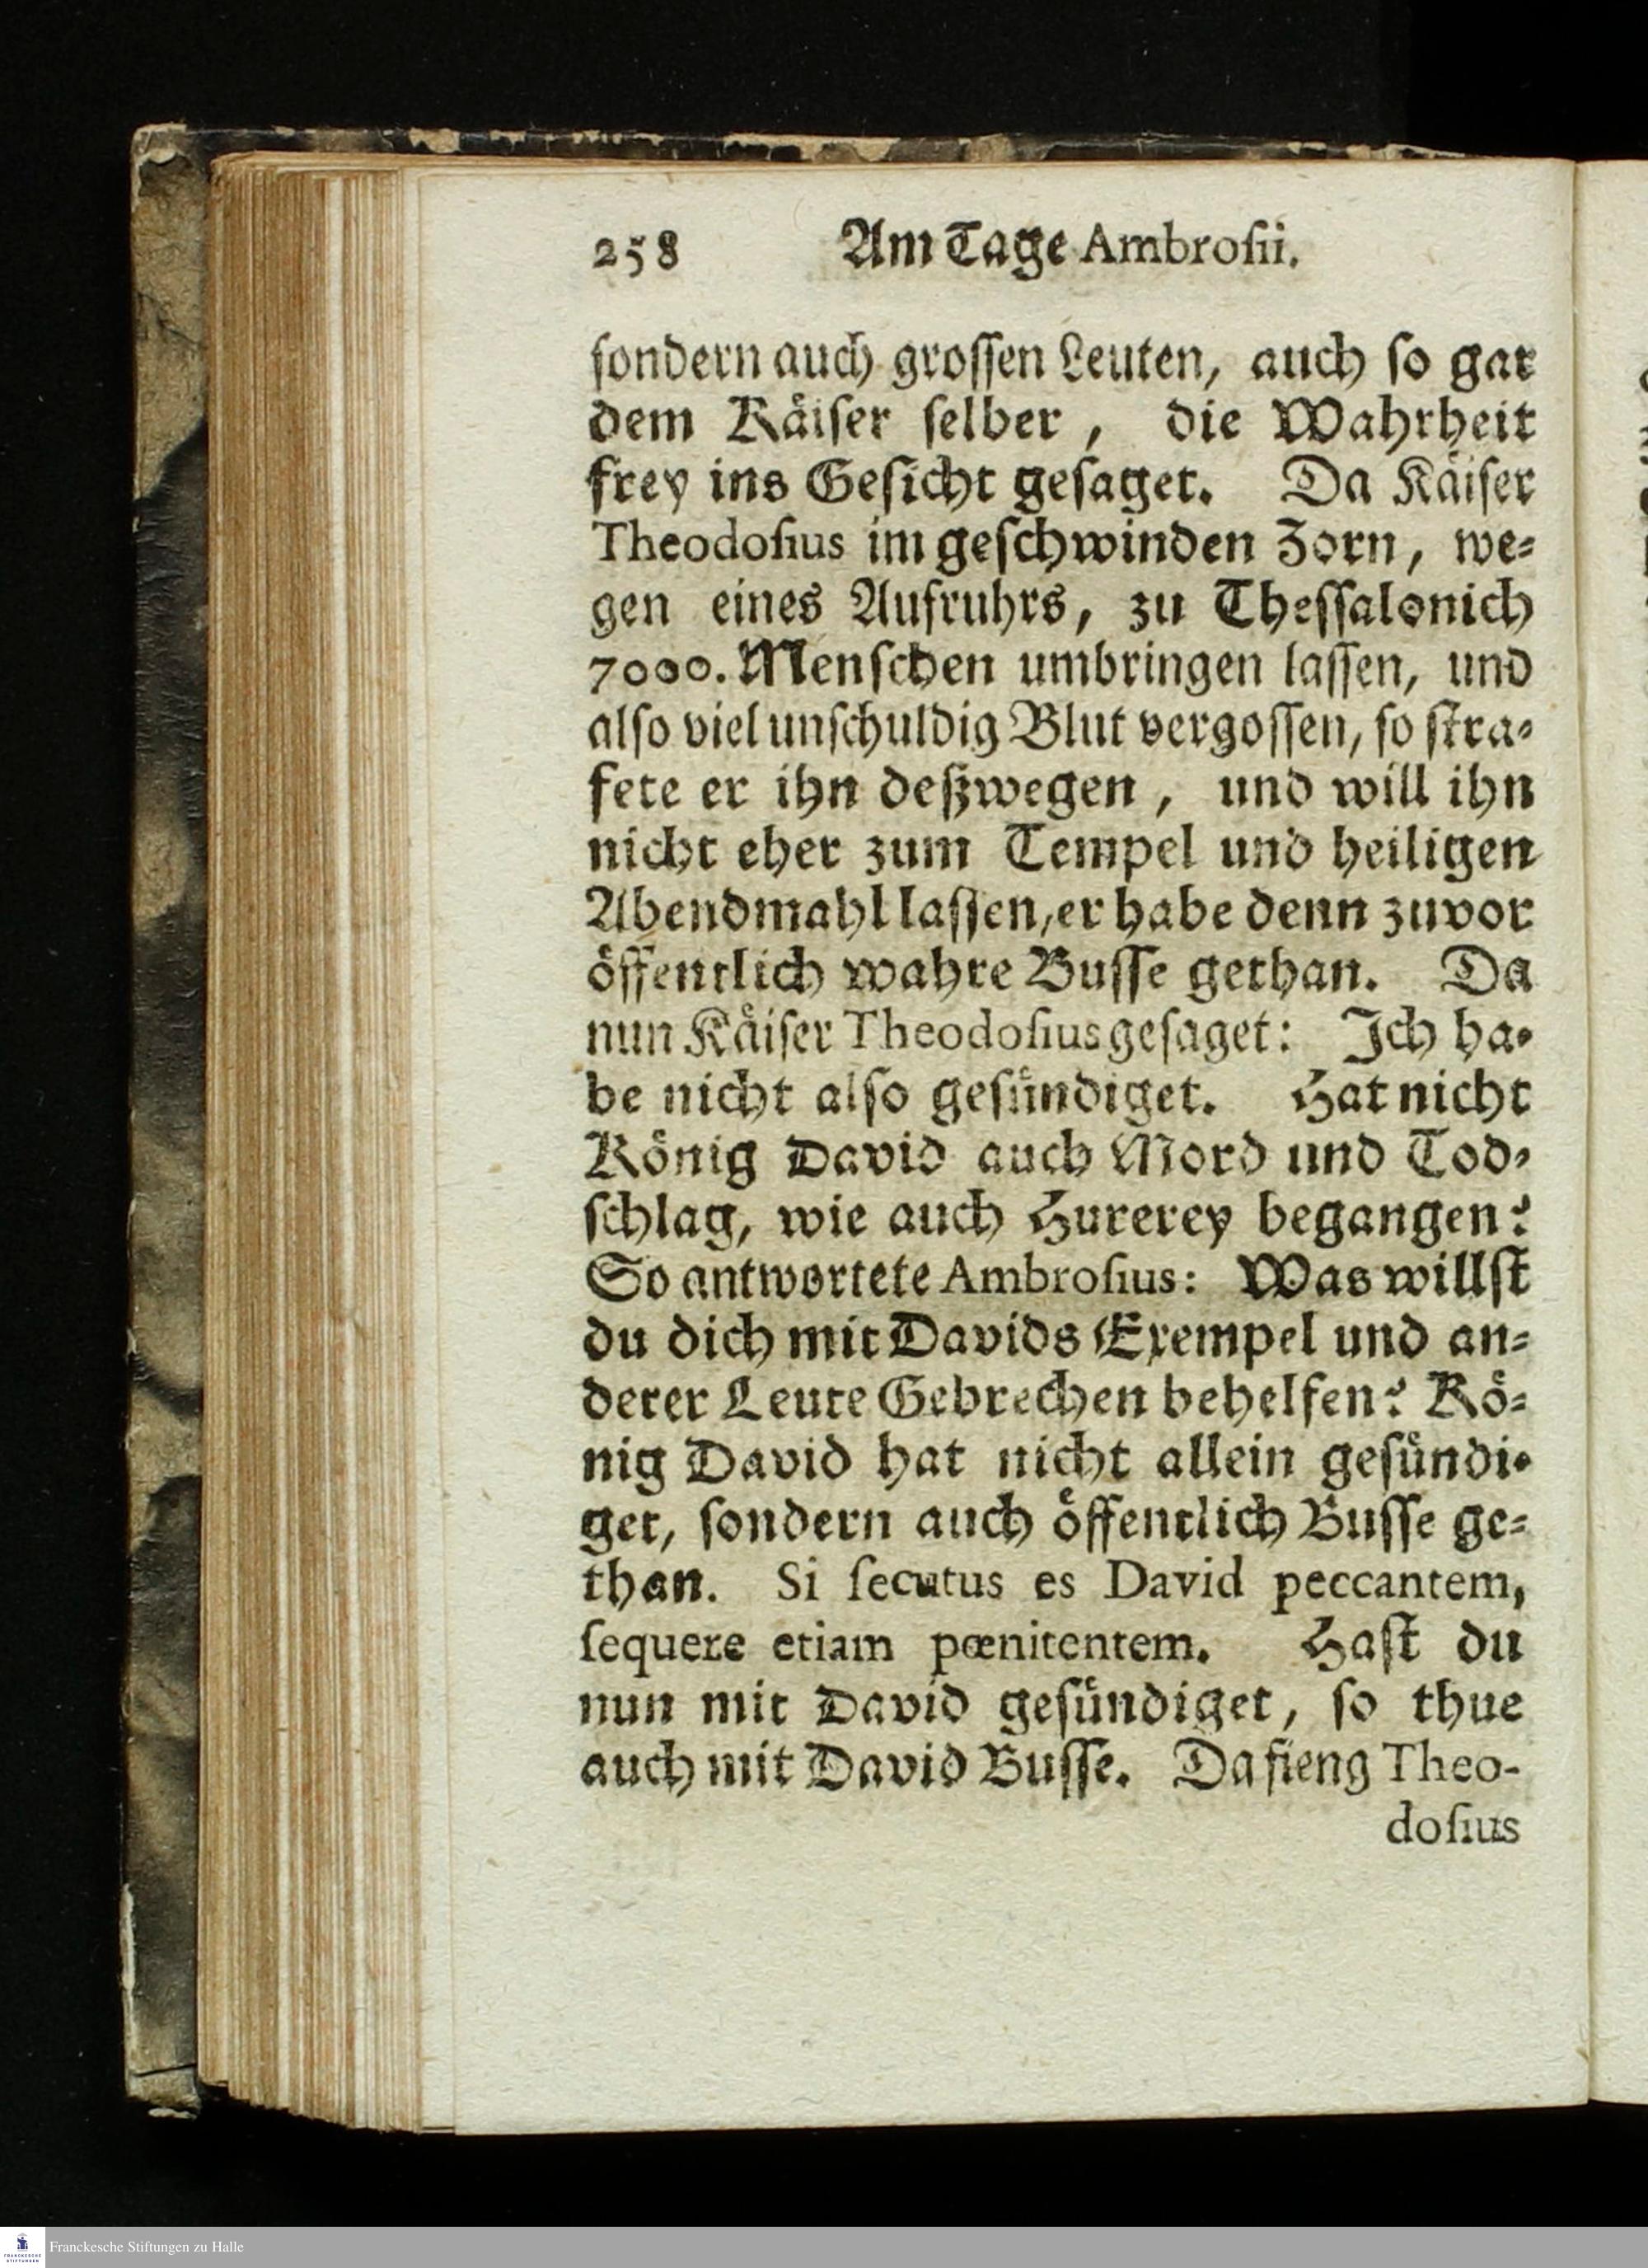 258 Am Tage Ambroſii.
ſondern auch groſſen Leuten, auch ſo gar
dem Kaͤiſer ſelber, die Wahrheit
frey ins Geſicht geſaget. Da Kaͤiſer
Theodoſius im geſchwinden Zorn, we⸗
gen eines Aufruhrs, zu Theſſalonich
7000. Menſchen umbringen laſſen, und
alſo viel unſchuldig Blut vergoſſen, ſo ſtra⸗
fete er ihn deßwegen, und will ihn
nicht eher zum Tempel und heiligen
Abendmahl laſſen, er habe denn zuvor
oͤffentlich wahre Buſſe gethan. Da
nun Kaͤiſer Theodoſius geſaget: Ich ha⸗
be nicht alſo geſuͤndiget. Hat nicht
Koͤnig David auch Mord und Tod⸗
ſchlag, wie auch Hurerey begangen?
So antwortete Ambroſius: Was willſt
du dich mit Davids Exempel und an⸗
derer Leute Gebrechen behelfen? Koͤ⸗
nig David hat nicht allein geſuͤndi⸗
get, ſondern auch oͤffentlich Buſſe ge⸗
than. Si ſecutus es David peccantem,
ſequere etiam pœnitentem. Haſt du
nun mit David geſuͤndiget, ſo thue
auch mit David Buſſe. Da fieng Theo-
doſius
FRANCKESCHE STIFTUNGEN
Franckesche Stiftungen zu Halle